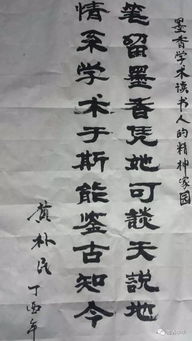 墨香学术读书人的精神家园
笔留墨香凭她可談天説地
情系学术于斯能鉴古知今
黄朴民 丁酉年